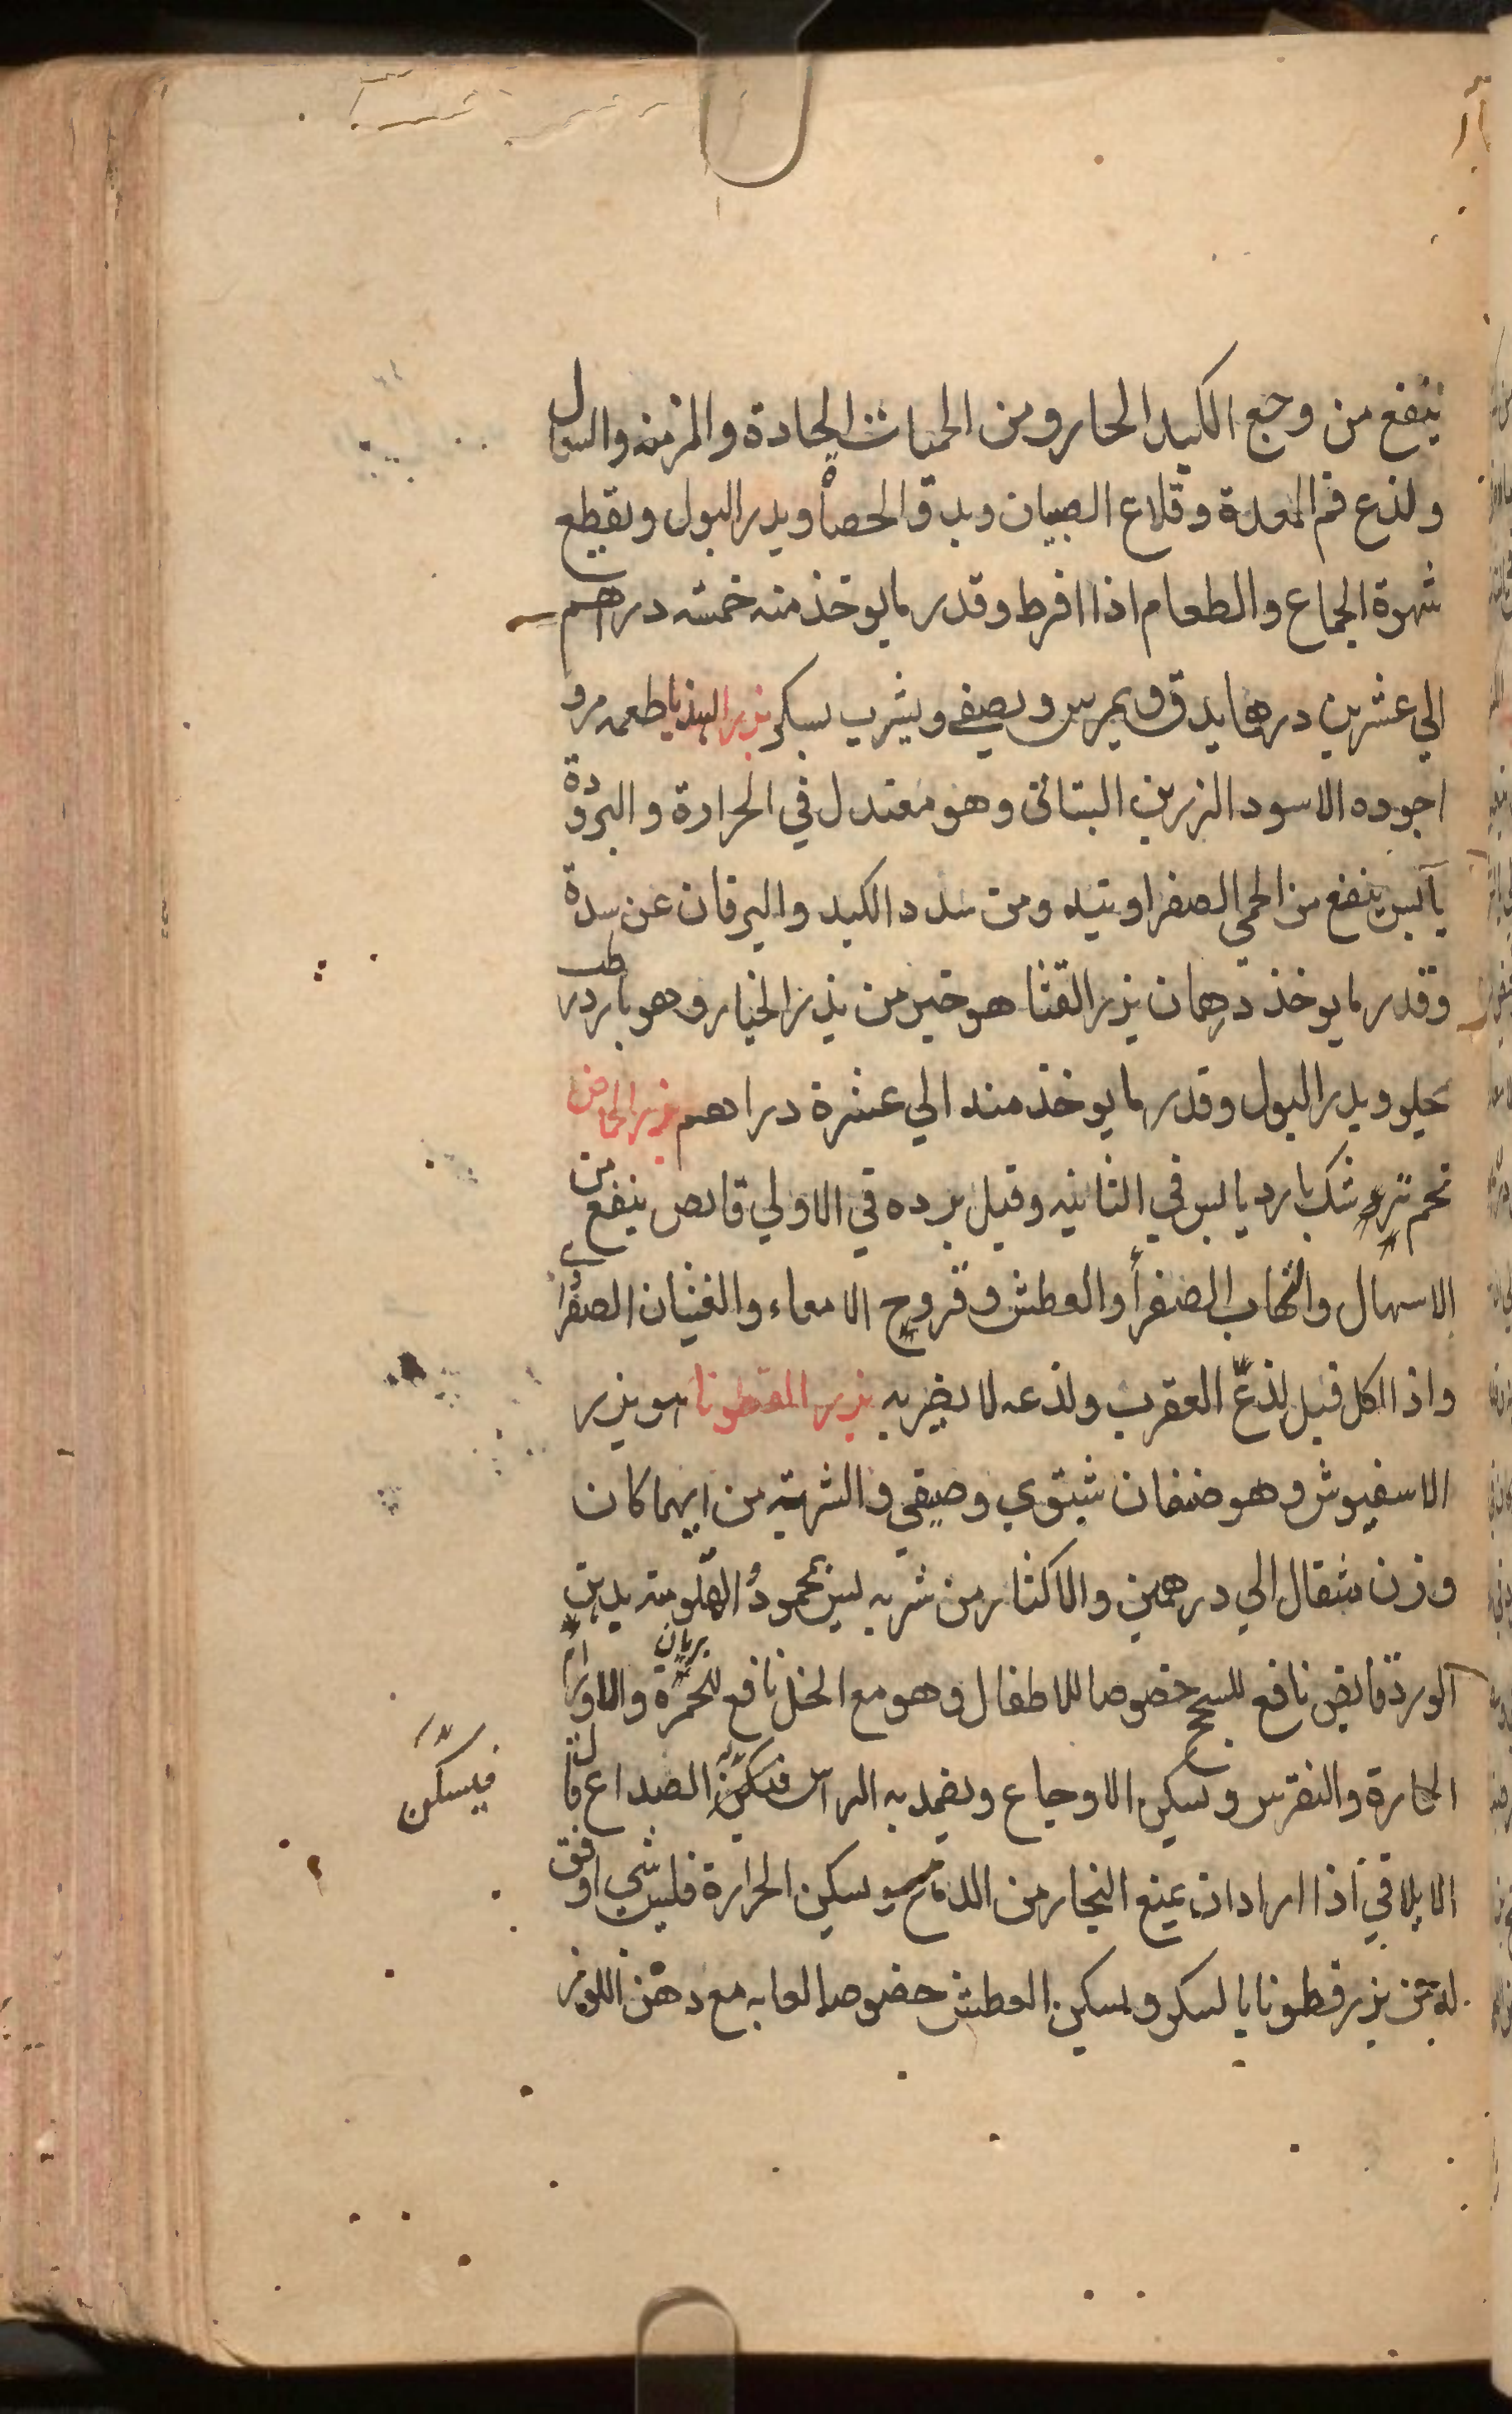 ينفع من وجع الكبد الحار ومن الحميات الحادة والمزمنه والسعال
ولذع فم المعدة وقلاع الصبيان ويدق الحصاه ويدر البول ويقطع
شهوة الجماع والطعام اذا افرط وقدر ما يوخذ منه خمسه دراهم
الي عشرين درهما يدق ويمرس ويصفي ويشرب بسكر بزر الهندبا طعمه مر و
اجوده الاسود الرزين البستاني وهو معتدل في الحرارة والبرودة
يابس ينفع من الحمي الصفراويه ومن سدد الكبد واليرقان عن سدة
وقدر ما يوخذ درهمان بزر القثا هو خير من بذر الخيار وهو بارد رطب
يجلو ويدر البول وقدر ما يوخذ منه الي عشرة دراهم بزر الحماض
تخم ترشك بارد يابس في الثانيه وقيل برده في الاولي قابض ينفع من
الاسهال والتهاب الصفرأ والعطش وقروح الامعاء والغثيان الصفراوي
واذا اكل قبل لذع العقرب ولذعه لا يضر به بزر القطونا هو بزر
الاسفيوش وهو صنفان شتوي وصيفي والشربة من ايهما كان
وزن مثقال الي درهمين والاكثار من شربه ليس بمحمود المقلو منه بدهن
الورد قابض نافع للسحج خصوصا للاطفال وهو مع الخل نافع للحمرة والاورام
الحارة والنقرس وتسكين الاوجاع ويضمد به الراس فيسكن الصداع قال
الايلاقي اذا اراد ان يمنع البخار من الدماغ ويسكن الحرارة فليس شي اوفق
له من بزر قطونا بالسكر ويسكن العطش خصوصا لعابه مع دهن اللوز
فيسكن